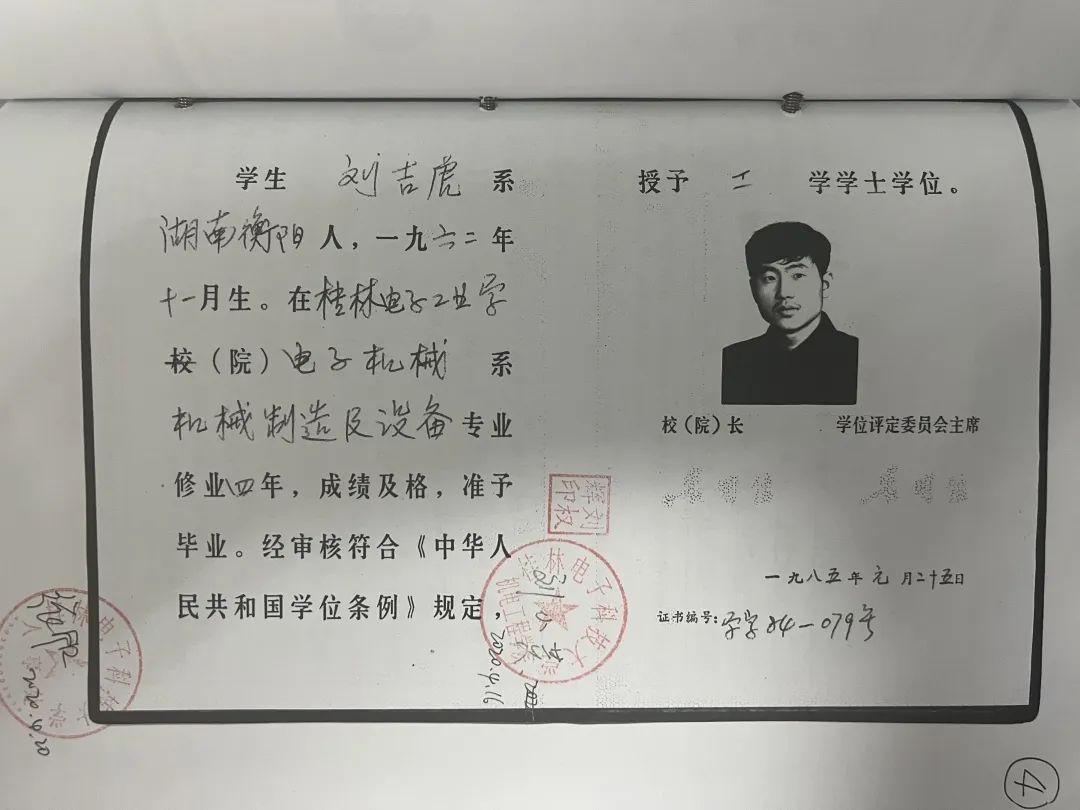 学生 刘吉虎 系
湖南衡阳人，一九六二年
十一月生。在桂林电子工业学
校（院）电子机械 系
机械制造及设备专业
修业四年，成绩及格，准予
毕业。经审核符合《中华人
民共和国学位条例》规定，
授予 工 学学士学位。
校（院）长 学位评定委员会主席
一九八五年元月二十五日
证书编号：学字84—079号
辉刘
印权
林电子科技大
机电工程学院
2020.4.16
林电子科技
2020.4.20
4